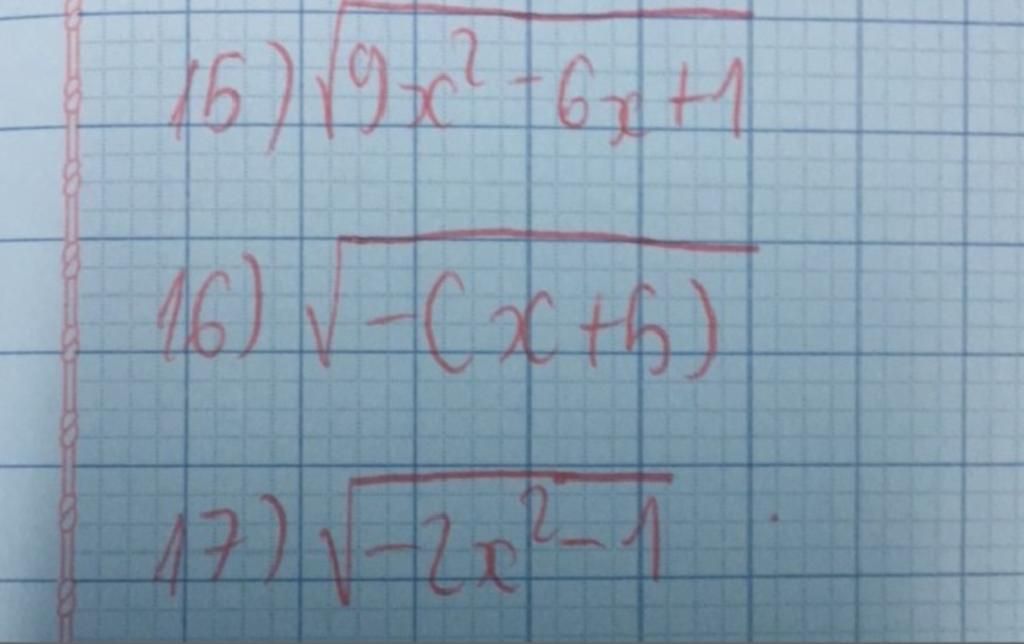 15) √(9x² - 6x + 1)
16) √(-(x + 5))
17) √(-2x² - 1)